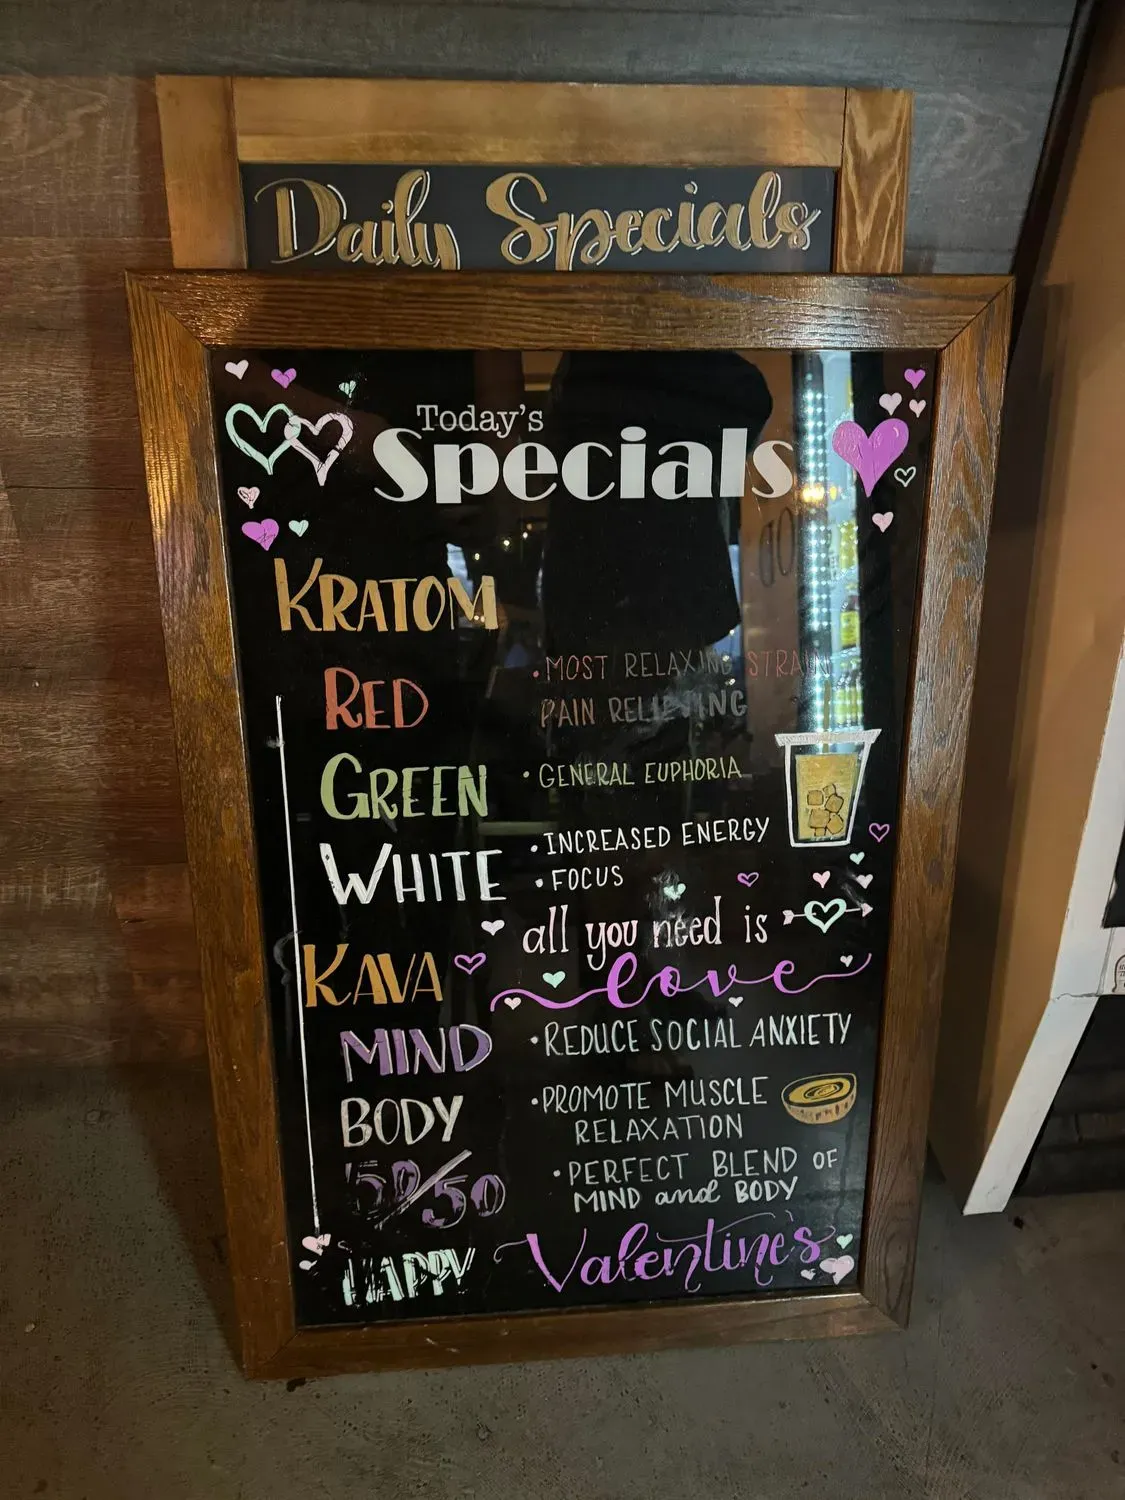 Daily Specials
Today's
Specials
KRATOM
RED
• MOST RELAXING STRAIN
PAIN RELIEVING
GREEN
• GENERAL EUPHORIA
WHITE
• INCREASED ENERGY
• FOCUS
all you need is
love
KAVA
MIND
• REDUCE SOCIAL ANXIETY
BODY
• PROMOTE MUSCLE
RELAXATION
50/50
• PERFECT BLEND OF
MIND and BODY
HAPPY Valentine's